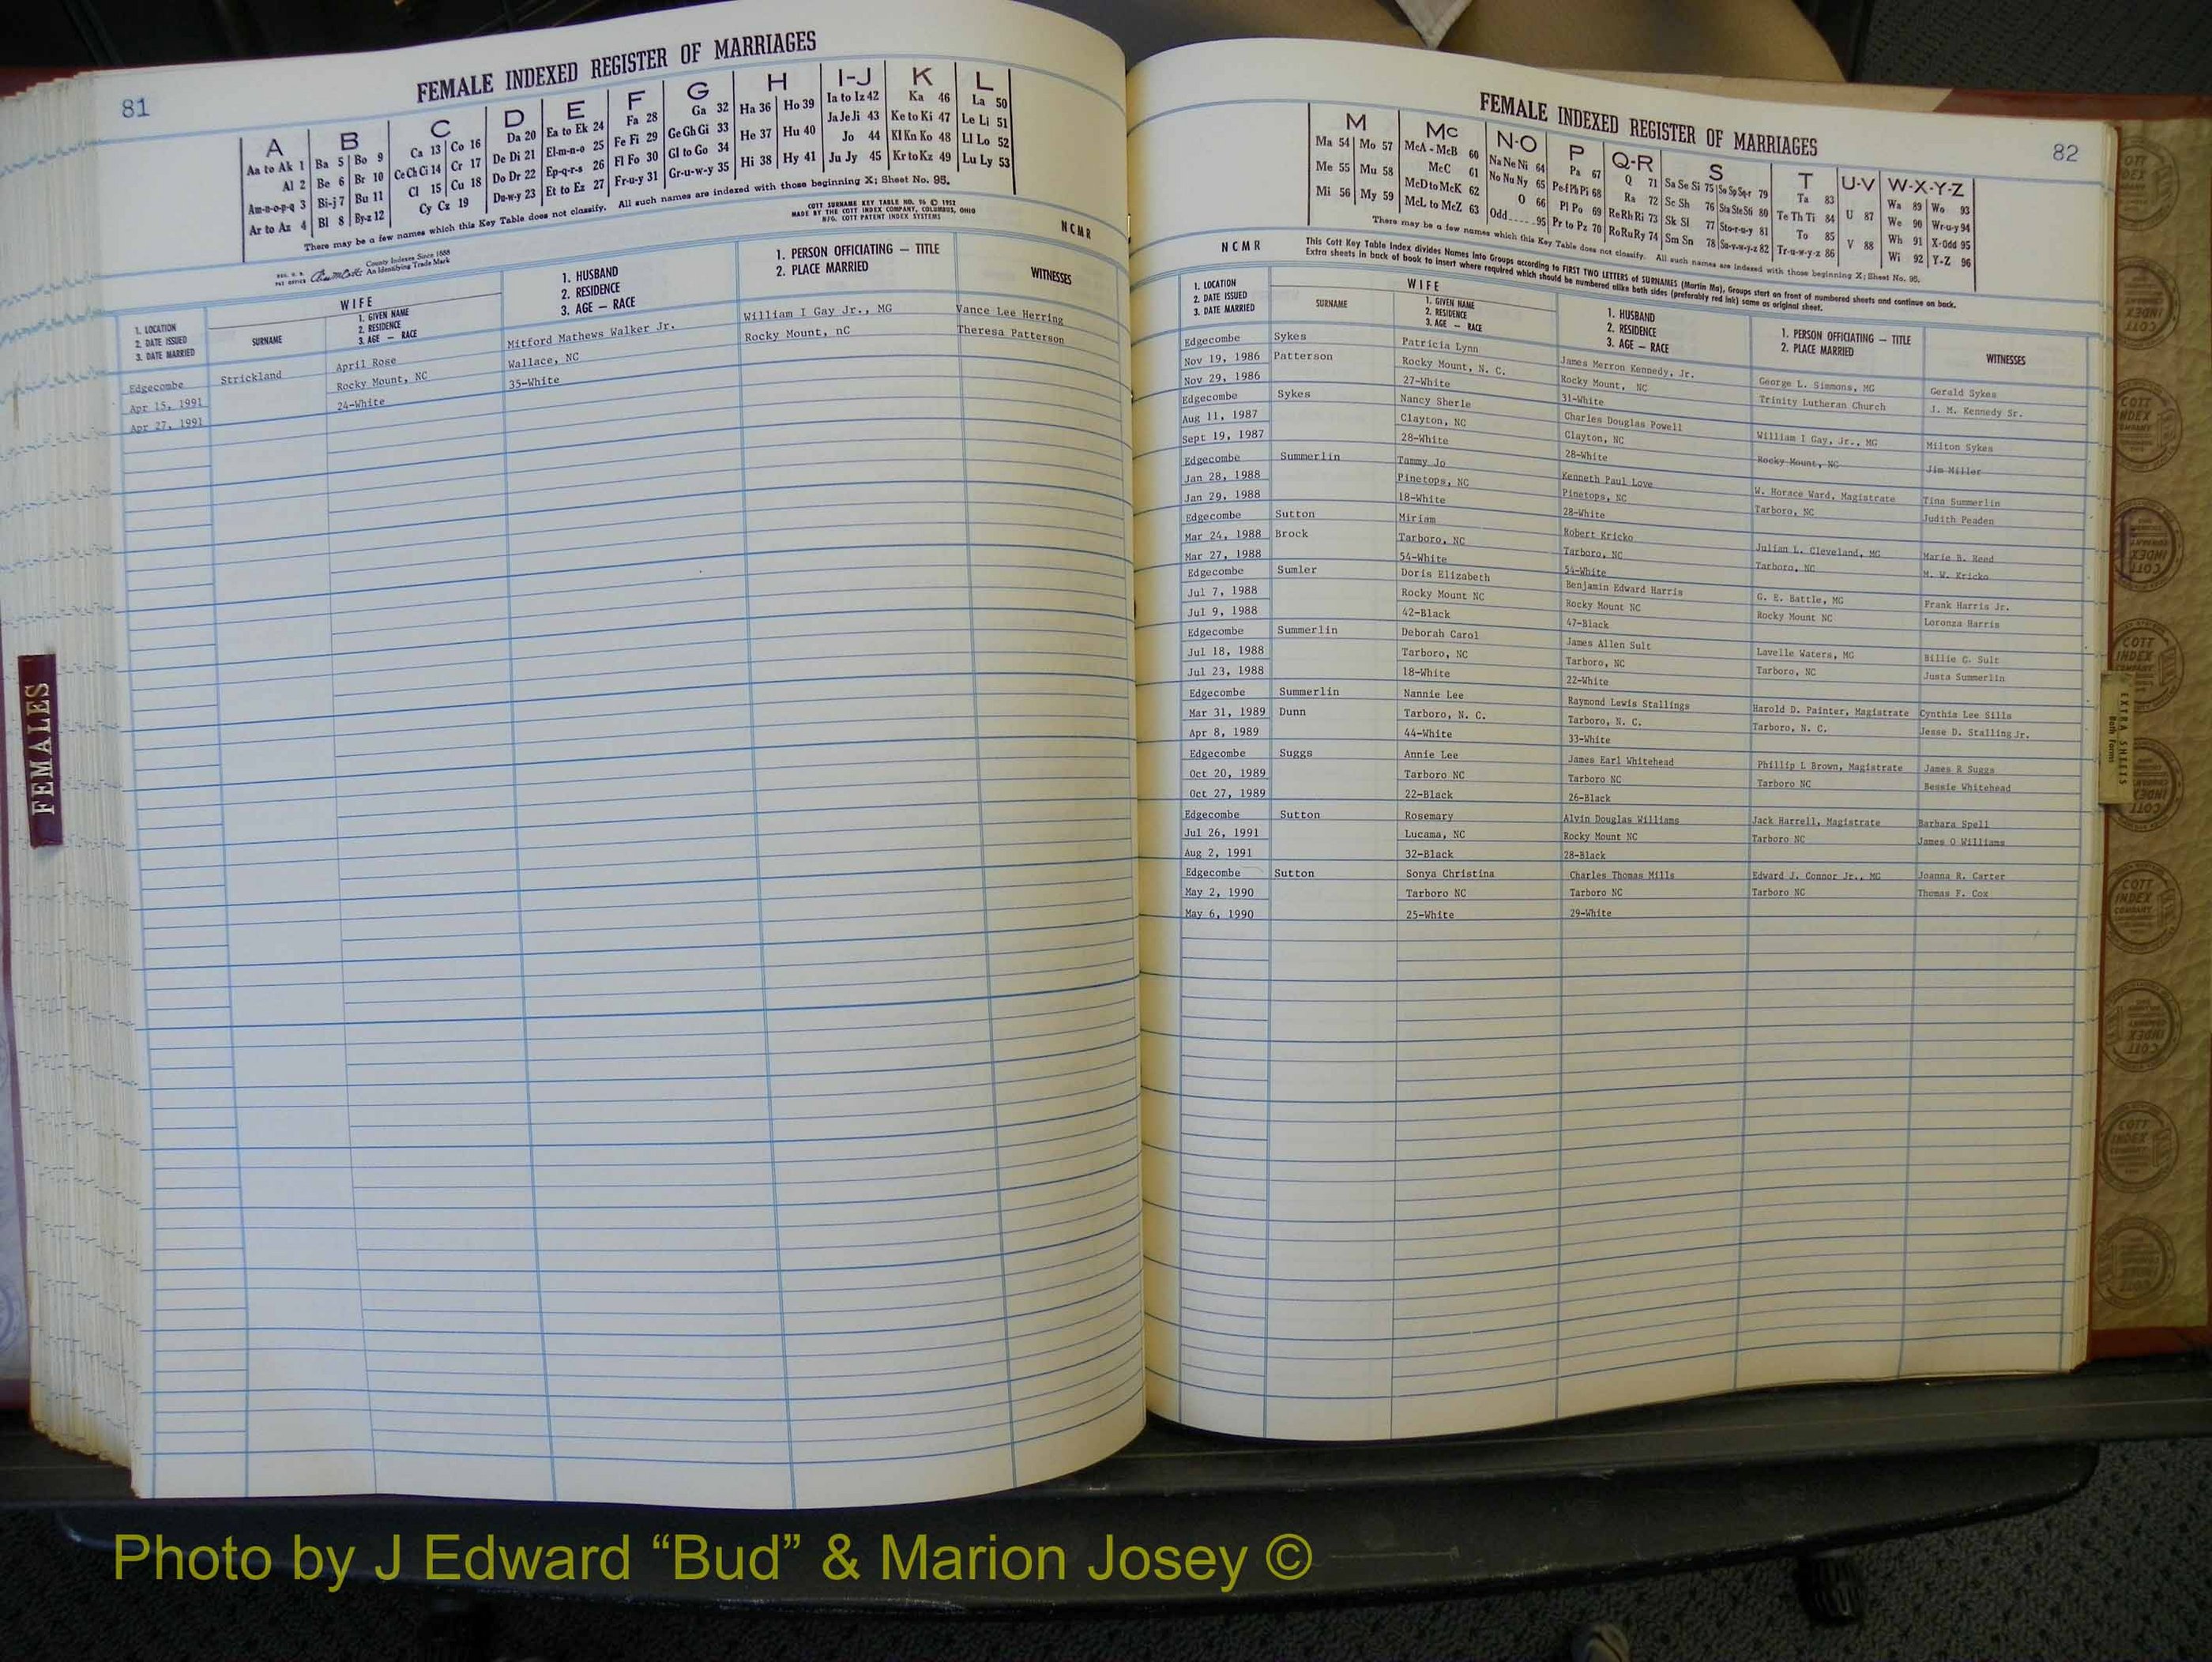 81
FEMALE INDEXED REGISTER OF MARRIAGES
A B C D E F G H I-J K L
Aa to Ak 1 Ba 5 Bo 9 Ca 13 Co 16 Da 20 Ea to Ek 24 Fa 28 Ga 32 Ha 36 Ho 39 Ia to Iz 42 Ka 46 La 50
Al 2 Be 6 Br 10 Ce Ch Ci 14 Cr 17 De Di 21 El-m-n-o 25 Fe Fi 29 Ge Gh Gi 33 He 37 Hu 40 Ja Je Ji 43 Ke to Ki 47 Le Li 51
Am-n-o-p-q 3 Bi-j 7 Bu 11 Cl 15 Cu 18 Do Dr 22 Ep-q-r-s 26 Fl Fo 30 Gl to Go 34 Hi 38 Hy 41 Jo 44 Kl Kn Ko 48 Ll Lo 52
Ar to Az 4 Bl 8 By-z 12 Cy Cz 19 Du-w-y 23 Et to Ez 27 Fr-u-y 31 Gr-u-w-y 35 Ju Jy 45 Kr to Kz 49 Lu Ly 53
There may be a few names which this Key Table does not classify. All such names are indexed with those beginning X; Sheet No. 95.
County Indexes Since 1888
An Identifying Trade Mark
COTT SURNAME KEY TABLE NO. 96 © 1952
MADE BY THE COTT INDEX COMPANY, COLUMBUS, OHIO
MFG. COTT PATENT INDEX SYSTEMS
NCMR
1. LOCATION
2. DATE ISSUED
3. DATE MARRIED
WIFE
SURNAME
1. GIVEN NAME
2. RESIDENCE
3. AGE — RACE
1. HUSBAND
2. RESIDENCE
3. AGE — RACE
1. PERSON OFFICIATING — TITLE
2. PLACE MARRIED
WITNESSES
Edgecombe Strickland April Rose Mitford Mathews Walker Jr. William I Gay Jr., MG Vance Lee Herring
Apr 15, 1991 Rocky Mount, NC Wallace, NC Rocky Mount, nC Theresa Patterson
Apr 27, 1991 24-White 35-White
FEMALES
FEMALE INDEXED REGISTER OF MARRIAGES
82
M Mc N-O P Q-R S T U-V W-X-Y-Z
Ma 54 Mo 57 McA - McB 60 Na Ne Ni 64 Pa 67 Q 71 Sa Se Si 75 So Sp Sq-r 79 Ta 83 U 87 Wa 89 Wo 93
Me 55 Mu 58 McC 61 No Nu Ny 65 Pe-f Ph Pi 68 Ra 72 Sc Sh 76 Sta Ste Sti 80 Te Th Ti 84 V 88 We 90 Wr-u-y 94
Mi 56 My 59 McD to McK 62 O 66 Pl Po 69 Re Rh Ri 73 Sk Sl 77 Sto-r-u-y 81 To 85 Wh 91 X-Odd 95
McL to McZ 63 Odd.....95 Pr to Pz 70 Ro Ru Ry 74 Sm Sn 78 Su-v-w-y-z 82 Tr-u-w-y-z 86 Wi 92 Y-Z 96
There may be a few names which this Key Table does not classify. All such names are indexed with those beginning X; Sheet No. 95.
NCMR
This Cott Key Table Index divides Names into Groups according to FIRST TWO LETTERS of SURNAMES (Martin Ma), Groups start on front of numbered sheets and continue on back.
Extra sheets in back of book to insert where required which should be numbered alike both sides (preferably red ink) same as original sheet.
1. LOCATION
2. DATE ISSUED
3. DATE MARRIED
WIFE
SURNAME
1. GIVEN NAME
2. RESIDENCE
3. AGE — RACE
1. HUSBAND
2. RESIDENCE
3. AGE — RACE
1. PERSON OFFICIATING — TITLE
2. PLACE MARRIED
WITNESSES
Edgecombe Sykes Patricia Lynn James Merron Kennedy, Jr. George L. Simmons, MG Gerald Sykes
Nov 19, 1986 Patterson Rocky Mount, N. C. Rocky Mount, NC Trinity Lutheran Church J. M. Kennedy Sr.
Nov 29, 1986 27-White 31-White
Edgecombe Sykes Nancy Sherle Charles Douglas Powell William I Gay, Jr., MG Milton Sykes
Aug 11, 1987 Clayton, NC Clayton, NC Rocky Mount, NC Jim Miller
Sept 19, 1987 28-White 28-White
Edgecombe Summerlin Tammy Jo Kenneth Paul Love W. Horace Ward, Magistrate Tina Summerlin
Jan 28, 1988 Pinetops, NC Pinetops, NC Tarboro, NC Judith Peaden
Jan 29, 1988 18-White 28-White
Edgecombe Sutton Miriam Robert Kricko Julian L. Cleveland, MG Marie B. Reed
Mar 24, 1988 Brock Tarboro, NC Tarboro, NC Tarboro, NC M. W. Kricko
Mar 27, 1988 54-White 54-White
Edgecombe Sumler Doris Elizabeth Benjamin Edward Harris G. E. Battle, MG Frank Harris Jr.
Jul 7, 1988 Rocky Mount NC Rocky Mount NC Rocky Mount NC Loronza Harris
Jul 9, 1988 42-Black 47-Black
Edgecombe Summerlin Deborah Carol James Allen Sult Lavelle Waters, MG Billie C. Sult
Jul 18, 1988 Tarboro, NC Tarboro, NC Tarboro, NC Justa Summerlin
Jul 23, 1988 18-White 22-White
Edgecombe Summerlin Nannie Lee Raymond Lewis Stallings Harold D. Painter, Magistrate Cynthia Lee Sills
Mar 31, 1989 Dunn Tarboro, N. C. Tarboro, N. C. Tarboro, N. C. Jesse D. Stalling Jr.
Apr 8, 1989 44-White 33-White
Edgecombe Suggs Annie Lee James Earl Whitehead Phillip L Brown, Magistrate James R Suggs
Oct 20, 1989 Tarboro NC Tarboro NC Tarboro NC Bessie Whitehead
Oct 27, 1989 22-Black 26-Black
Edgecombe Sutton Rosemary Alvin Douglas Williams Jack Harrell, Magistrate Barbara Spell
Jul 26, 1991 Lucama, NC Rocky Mount NC Tarboro NC James O Williams
Aug 2, 1991 32-Black 28-Black
Edgecombe Sutton Sonya Christina Charles Thomas Mills Edward J. Connor Jr., MG Joanna R. Carter
May 2, 1990 Tarboro NC Tarboro NC Tarboro NC Thomas F. Cox
May 6, 1990 25-White 29-White
EXTRA SHEETS
Both Forms
COTT INDEX COMPANY
Photo by J Edward “Bud” & Marion Josey ©